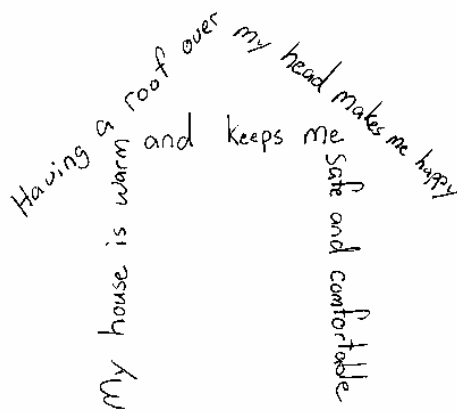 Having a roof over my head makes me happy
My house is warm and keeps me safe and comfortable